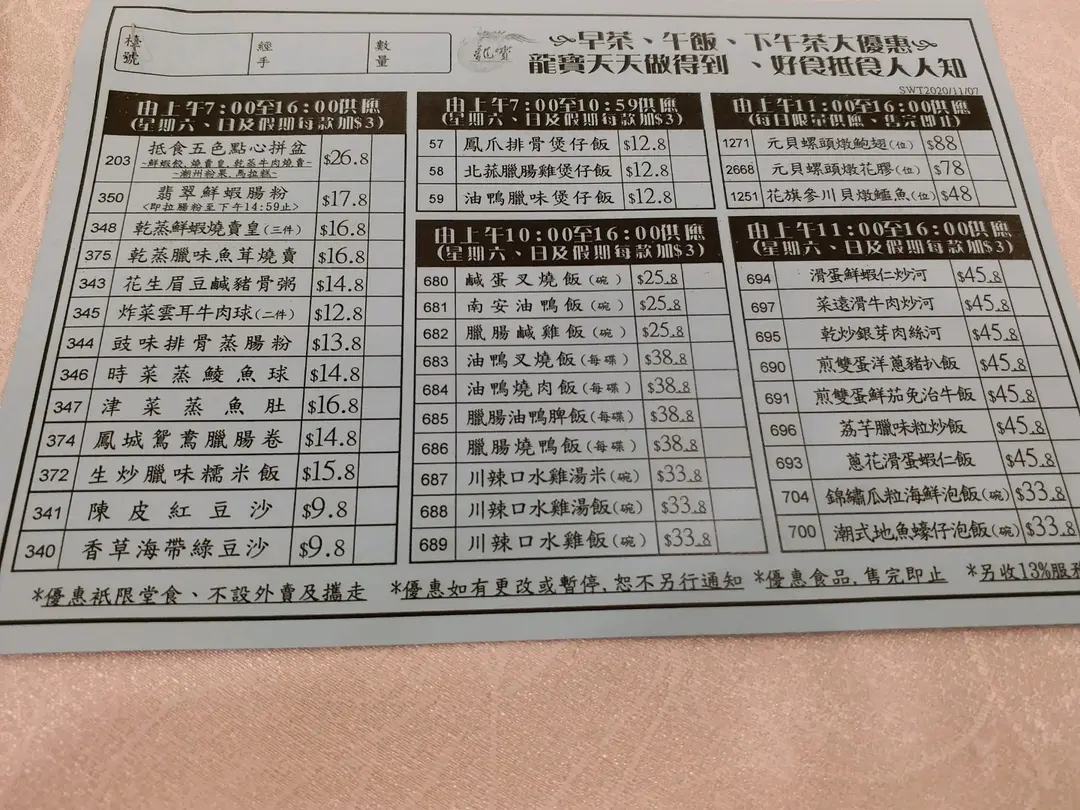 檯號
經手
數量
龍寶
早茶、午飯、下午茶大優惠
龍寶天天做得到、好食抵食人人知
SWT2020/11/07
由上午7:00至16:00供應
(星期六、日及假期每款加$3)
203 抵食五色點心拼盆 $26.8
~鮮蝦餃,燒賣皇,乾蒸牛肉燒賣~
~潮州粉果,馬拉糕~
350 翡翠鮮蝦腸粉 $17.8
<即拉腸粉至下午14:59止>
348 乾蒸鮮蝦燒賣皇(三件) $16.8
375 乾蒸臘味魚茸燒賣 $16.8
343 花生眉豆鹹豬骨粥 $14.8
345 炸菜雲耳牛肉球(二件) $12.8
344 豉味排骨蒸腸粉 $13.8
346 時菜蒸鯪魚球 $14.8
347 津菜蒸魚肚 $16.8
374 鳳城鴛鴦臘腸卷 $14.8
372 生炒臘味糯米飯 $15.8
341 陳皮紅豆沙 $9.8
340 香草海帶綠豆沙 $9.8
由上午7:00至10:59供應
(星期六、日及假期每款加$3)
57 鳳爪排骨煲仔飯 $12.8
58 北菰臘腸雞煲仔飯 $12.8
59 油鴨臘味煲仔飯 $12.8
由上午10:00至16:00供應
(星期六、日及假期每款加$3)
680 鹹蛋叉燒飯(碗) $25.8
681 南安油鴨飯(碗) $25.8
682 臘腸鹹雞飯(碗) $25.8
683 油鴨叉燒飯(每碟) $38.8
684 油鴨燒肉飯(每碟) $38.8
685 臘腸油鴨脾飯(每碟) $38.8
686 臘腸燒鴨飯(每碟) $38.8
687 川辣口水雞湯米(碗) $33.8
688 川辣口水雞湯飯(碗) $33.8
689 川辣口水雞飯(碗) $33.8
由上午11:00至16:00供應
(每日限量供應、售完即止)
1271 元貝螺頭燉鮑翅(位) $88
2668 元貝螺頭燉花膠(位) $78
1251 花旗參川貝燉鱷魚(位) $48
由上午11:00至16:00供應
(星期六、日及假期每款加$3)
694 滑蛋鮮蝦仁炒河 $45.8
697 菜遠滑牛肉炒河 $45.8
695 乾炒銀芽肉絲河 $45.8
690 煎雙蛋洋蔥豬扒飯 $45.8
691 煎雙蛋鮮茄免治牛飯 $45.8
696 荔芋臘味粒炒飯 $45.8
693 蔥花滑蛋蝦仁飯 $45.8
704 錦繡瓜粒海鮮泡飯(碗) $33.8
700 潮式地魚蠔仔泡飯(碗) $33.8
*優惠衹限堂食、不設外賣及攜走 *優惠如有更改或暫停,恕不另行通知 *優惠食品,售完即止 *另收13%服務